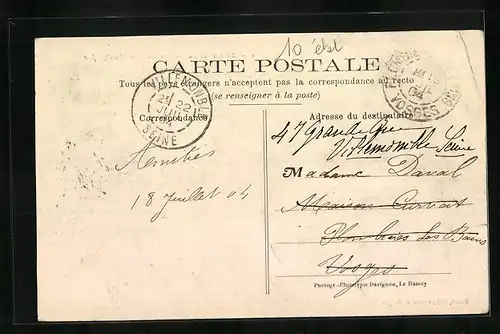 10 ébl
CARTE POSTALE
Tous les pays étrangers n'acceptent pas la correspondance au recto
(se renseigner à la poste)
VILLEMOMBLE
2E 22
JUIL
SEINE
VOSGES
Correspondance
Adresse du destinataire
47 Grande Rue
Villemomble Seine
Amitiés
18 Juillet 04
Madame Daval
Maison
Plombières les Bains
Vosges
Photogr.-Phototypie Davignon, Le Raincy